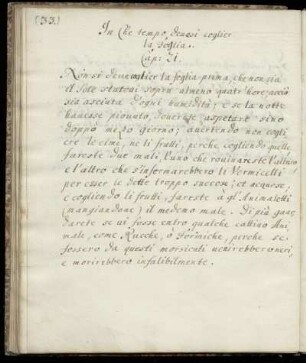 (33)
In Che tempo, devesi coglier
la foglia.
Cap: II.
Non si deve coglier la foglia prima, che non sia
il Sole statovi sopra almeno quatr'hore, acciò
sia asciuta d'ogni humidità; e se la notte
havesse piovuto, doverete aspetare sino
doppo mezo giorno; avertendo non cogli
ere le cime, ne li frutti, perche cogliendo quelle
fareste due mali, l'uno che rovinareste l'albero
e l'altro che s'infermarebbero li Vermicelli
per esser le dette troppo succose, et acquose,
e cogliendo li frutti, fareste à gl'Animaletti
(mangiandone) il medemo male. Di più guar
darete se vi fosse entro qualche cattivo Ani
male, come Rucche, ò formiche, perche se
fossero da questi morsicati venirebbero neri,
e morirebbero infalibilmente.